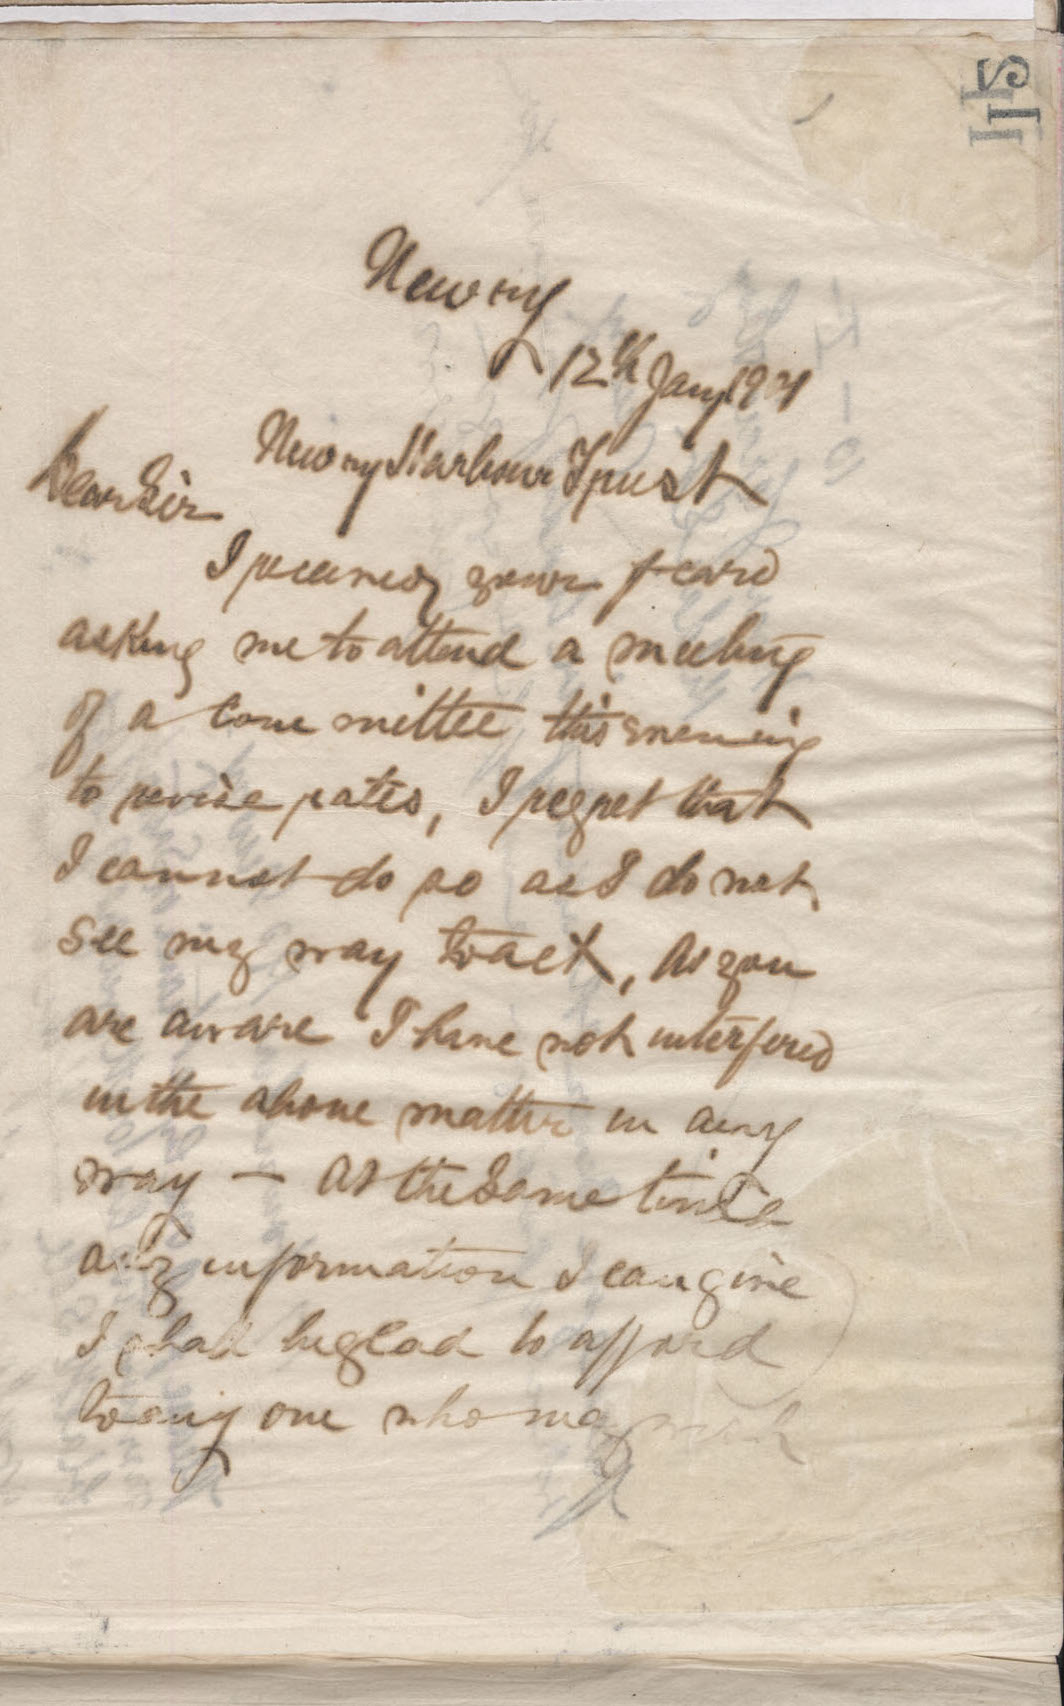 115
Newry
12th Jany 1901
Newry Harbour Trust
Dear Sir
I received your p card
asking me to attend a meeting
of a Committee this evening
to revise rates, I regret that
I cannot do so as I do not
see my way to act, As you
are aware I have not interfered
in the above matter in any
way — At the same time
any information I can give
I shall be glad to afford
to any one who may wish